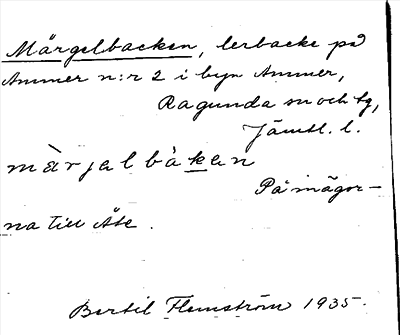 Märgelbacken, lerbacke på
Ammer n:r 2 i byn Ammer,
Ragunda sn och tg,
Jämtl. l.
màrjəlbàkən
På mågor-
na till Åke.
Bertil Flemström 1935.